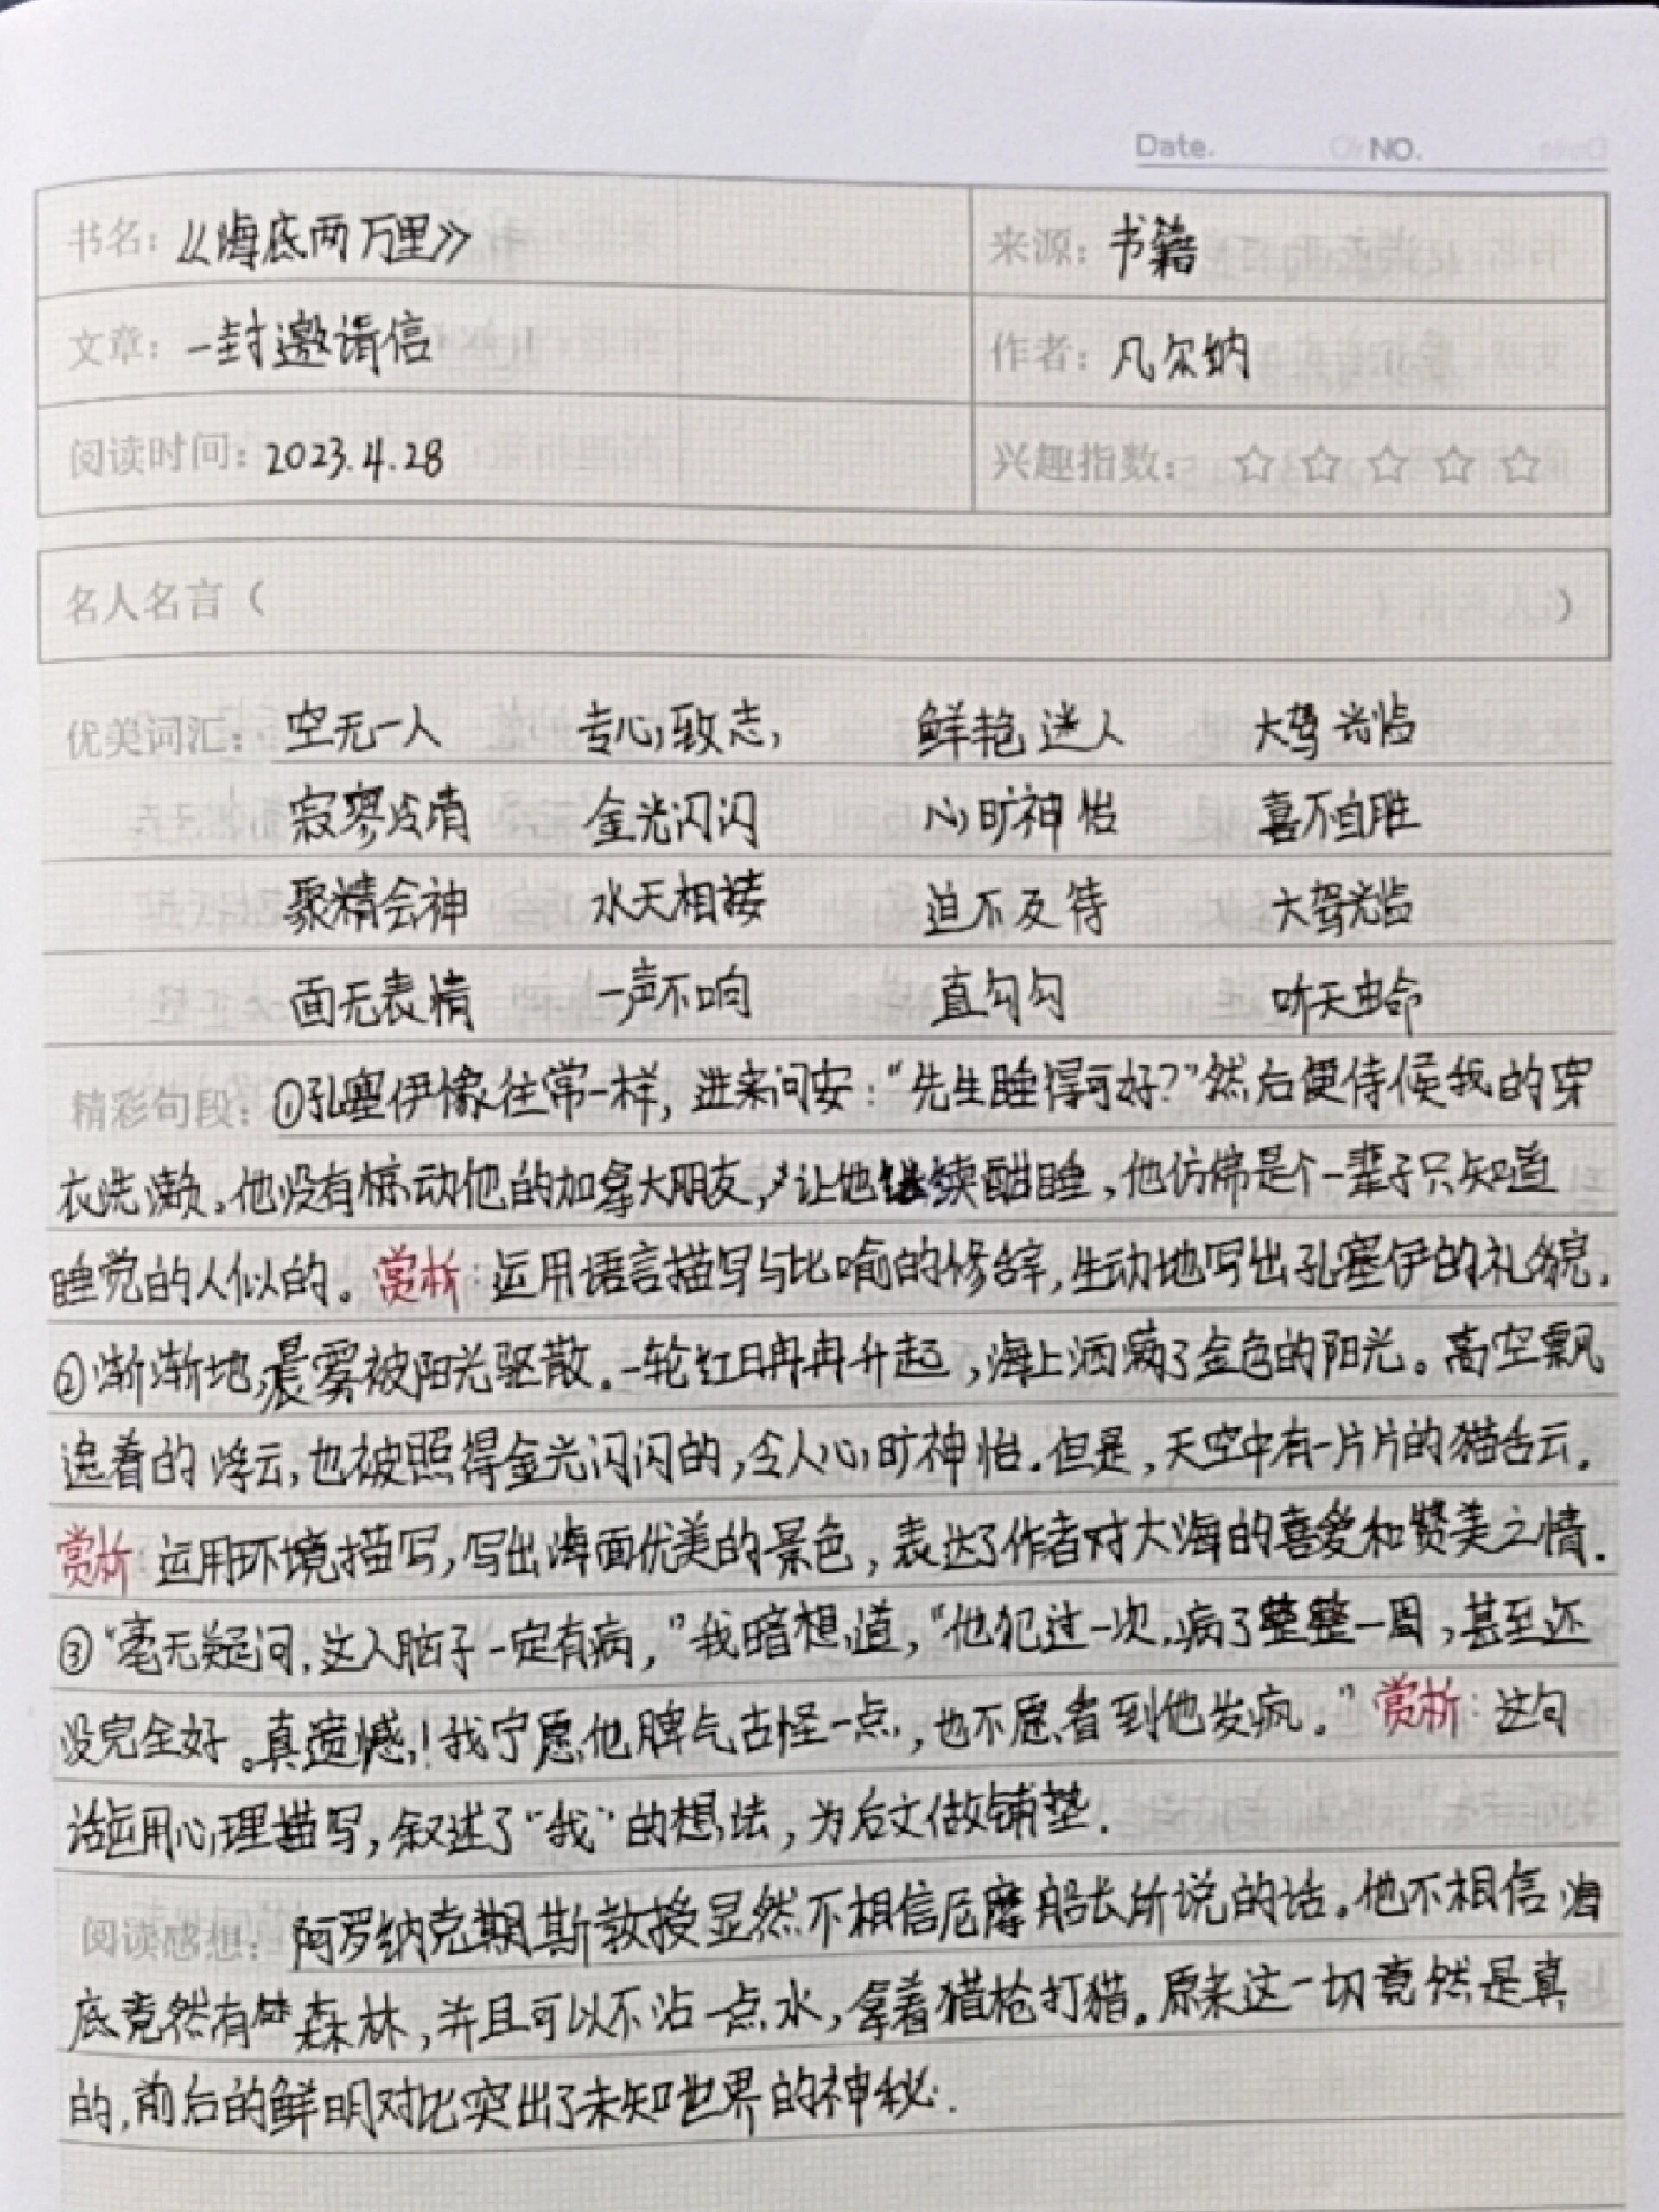 Date. NO.
书名：《海底两万里》 来源：书籍
文章：一封邀请信 作者：凡尔纳
阅读时间：2023.4.28 兴趣指数：☆☆☆☆☆
名人名言（ ）
优美词汇：空无一人 专心致志， 鲜艳迷人 大驾光临
寂寥冷清 金光闪闪 心旷神怡 喜不自胜
聚精会神 水天相接 迫不及待 大驾光临
面无表情 一声不响 直勾勾 听天由命
精彩句段：①孔塞伊像往常一样，进来问安：“先生睡得可好？”然后便侍候我的穿
衣洗漱。他没有惊动他的加拿大朋友，让他继续酣睡，他仿佛是个一辈子只知道
睡觉的人似的。赏析：运用语言描写与比喻的修辞，生动地写出孔塞伊的礼貌.
②渐渐地，晨雾被阳光驱散.一轮红日冉冉升起，海上洒满了金色的阳光。高空飘
逸着的浮云，也被照得金光闪闪的，令人心旷神怡.但是，天空中有一片片的猫舌云.
赏析：运用环境描写，写出海面优美的景色，表达了作者对大海的喜爱和赞美之情.
③“毫无疑问，这人脑子一定有病，”我暗想道，“他犯过一次，病了整整一周，甚至还
没完全好。真遗憾！我宁愿他脾气古怪一点，也不愿看到他发疯。”赏析：这句
话运用心理描写，叙述了“我”的想法，为后文做铺垫.
阅读感想：阿罗纳克期斯教授显然不相信尼摩船长所说的话。他不相信海
底竟然有森林，并且可以不沾一点水，拿着猎枪打猎。原来这一切竟然是真
的，前后的鲜明对比突出了未知世界的神秘.